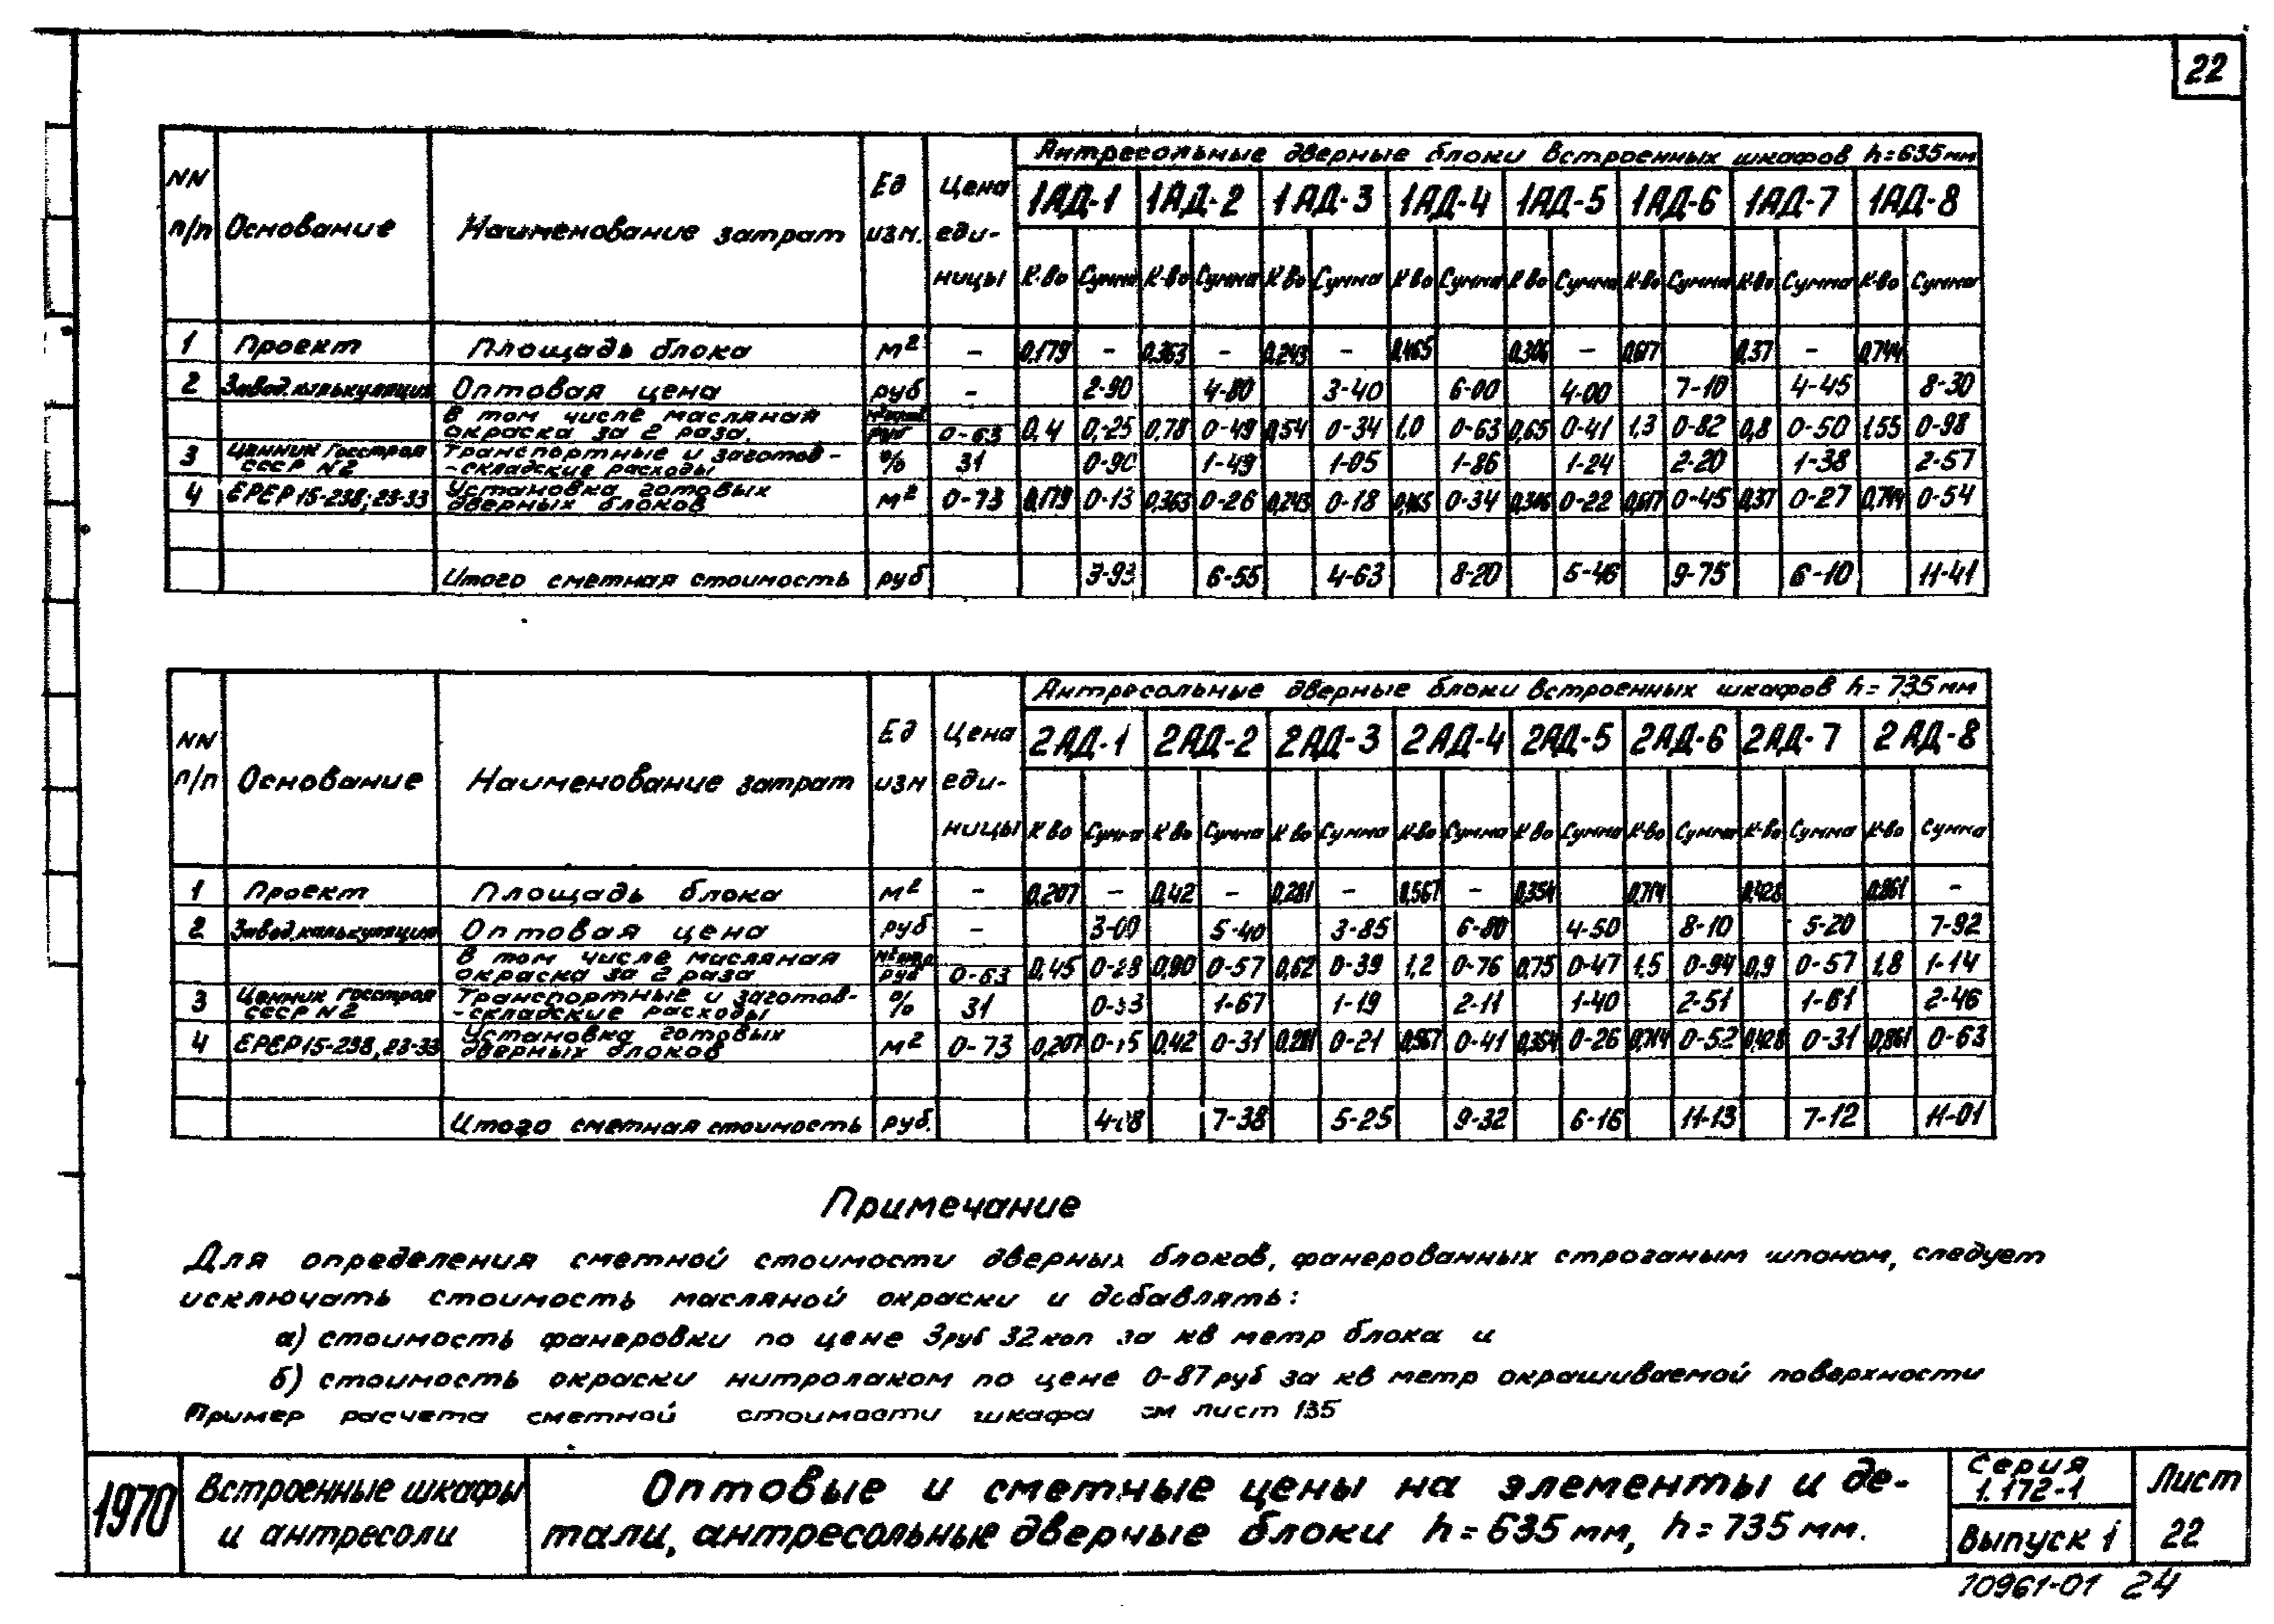 22
NN п/п Основание Наименование затрат Ед изм. Цена еди-ницы Антресольные дверные блоки встроенных шкафов h=635мм
1АД-1 1АД-2 1АД-3 1АД-4 1АД-5 1АД-6 1АД-7 1АД-8
К-во Сумма К-во Сумма К во Сумма К во Сумма К во Сумма К-во Сумма К-во Сумма К-во Сумма
1 Проект Площадь блока м² – 0,179 – 0,363 – 0,243 – 0,465 0,306 – 0,617 0,37 – 0,744
2 Завод.калькуляция Оптовая цена руб – 2-90 4-80 3-40 6-00 4-00 7-10 4-45 8-30
в том числе масляная окраска за 2 раза. руб 0-63 0,4 0,-25 0,78 0-49 0,54 0-34 1,0 0-63 0,65 0-41 1,3 0-82 0,8 0-50 1,55 0-98
3 Ценник Госстроя СССР N2 Транспортные и заготов--складские расходы % 31 0-90 1-49 1-05 1-86 1-24 2-20 1-38 2-57
4 ЕРЕР15-238; 23-33 Установка готовых дверных блоков м² 0-73 0,179 0-13 0,363 0-26 0,243 0-18 0,465 0-34 0,306 0-22 0,617 0-45 0,37 0-27 0,744 0-54
Итого сметная стоимость руб 3-93 6-55 4-63 8-20 5-46 9-75 6-10 11-41
NN п/п Основание Наименование затрат Ед изм Цена еди-ницы Антресольные дверные блоки встроенных шкафов h=735мм
2АД-1 2АД-2 2АД-3 2АД-4 2АД-5 2АД-6 2АД-7 2АД-8
К во Сумма К во Сумма К во Сумма К-во Сумма К во Сумма К-во Сумма К-во Сумма К-во Сумма
1 Проект Площадь блока м² – 0,207 – 0,42 – 0,281 – 0,567 – 0,354 0,714 0,428 0,861 –
2 Завод.калькуляция Оптовая цена руб – 3-00 5-40 3-85 6-80 4-50 8-10 5-20 7-92
в том числе масляная окраска за 2 раза руб 0-63 0,45 0-28 0,90 0-57 0,62 0-39 1,2 0-76 0,75 0-47 1,5 0-94 0,9 0-57 1,8 1-14
3 Ценник Госстроя СССР N2 Транспортные и заготов--складские расходы % 31 1-67 1-19 2-11 1-40 2-51 1-61 2-46
4 ЕРЕР15-238, 23-33 Установка готовых дверных блоков м² 0-73 0,207 0-15 0,42 0-31 0,281 0-21 0,567 0-41 0,354 0-26 0,714 0-52 0,428 0-31 0,861 0-63
Итого сметная стоимость руб. 7-38 5-25 9-32 6-16 11-13 7-12 11-01
Примечание
Для определения сметной стоимости дверных блоков, фанерованных строганым шпоном, следует
исключать стоимость масляной окраски и добавлять:
а) стоимость фанеровки по цене 3руб 32коп за кв метр блока и
б) стоимость окраски нитролаком по цене 0-87руб за кв метр окрашиваемой поверхности
Пример расчета сметной стоимости шкафа см лист 135
1970
Встроенные шкафы
и антресоли
Оптовые и сметные цены на элементы и де-
тали, антресольные дверные блоки h=635мм, h=735мм.
Серия
1.172-1
Выпуск 1
Лист
22
10961-01 24